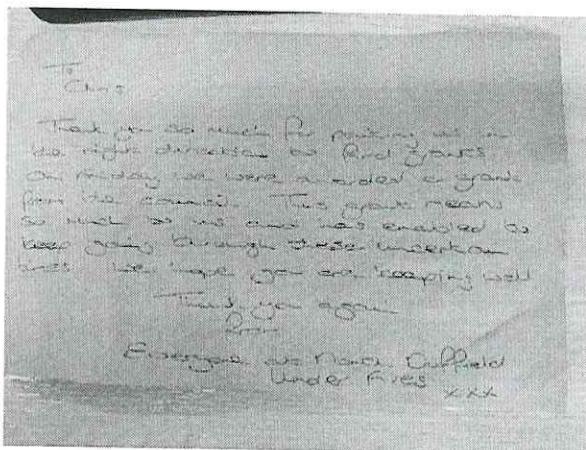 To
Chris
Thank you so much for pointing us in
the right direction to find grants.
On Friday we were awarded a grant
from the council. This grant means
so much to us and has enabled to
keep going through these uncertain
times. We hope you are keeping well
Thank you again
from
Everyone at North Duffield
Under Fives
xxx